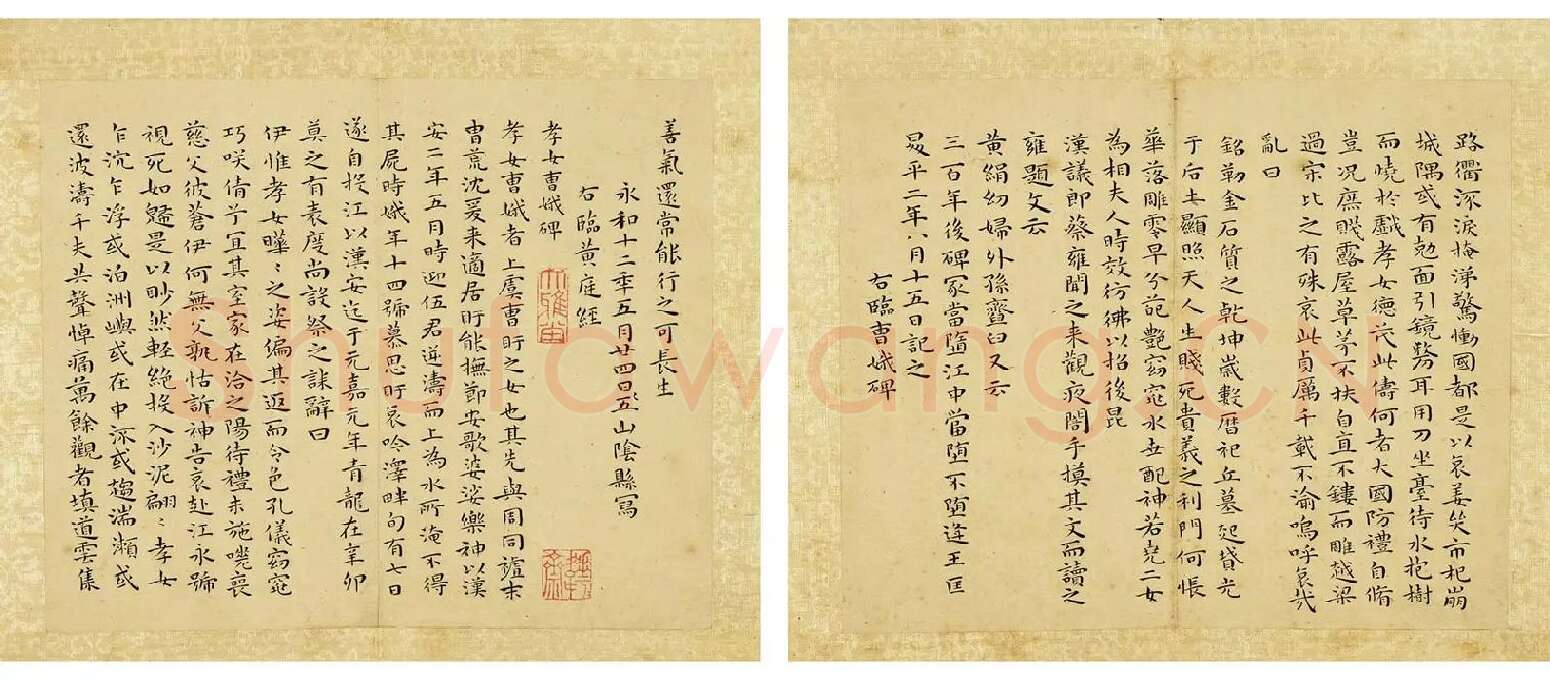 善氣還常能行之可長生
永和十二年五月廿四日五山陰縣寫
右臨黃庭經
孝女曹娥碑
孝女曹娥者上虞曹盱之女也其先與周同祖末
冑荒沈爰来適居盱能撫節安歌婆娑樂神以漢
安二年五月時迎伍君逆濤而上為水所淹不得
其屍時娥年十四號慕思盱哀吟澤畔旬有七日
遂自投江以漢安迄于元嘉元年青龍在辛卯
莫之有表度尚設祭之誄辭曰
伊惟孝女曄〻之姿偏其返而令色孔儀窈窕
巧咲倩兮宜其室家在洽之陽待禮未施嗟喪
慈父彼蒼伊何無父孰怙訴神告哀赴江永號
視死如歸是以眇然輕絕投入沙泥翩〻孝女
乍沉乍浮或泊洲嶼或在中流或趨湍瀨或
還波濤千夫共聲悼痛萬餘觀者填道雲集
路衢流淚掩涕驚慟國都是以哀姜哭市杞崩
城隅或有勉面引鏡剺耳用刀坐臺待水抱樹
而燒於戲孝女德茂此儔何者大國防禮自脩
豈况庶賤露屋草茅不扶自直不鏤而雕越梁
過宋比之有殊哀此貞厲千載不渝嗚呼哀哉
亂曰
銘勒金石質之乾坤歲數曆祀丘墓起墳光
于后土顯照天人生賤死貴義之利門何悵
華落雕零早分葩艷窈窕永世配神若堯二女
為相夫人時效彷彿以招後昆
漢議郎蔡雍聞之来觀夜闇手摸其文而讀之
雍題文云
黃絹幼婦外孫齏臼又云
三百年後碑冢當墮江中當墮不墮逢王匡
昇平二年八月十五日記之
右臨曹娥碑
Shufawang.CN